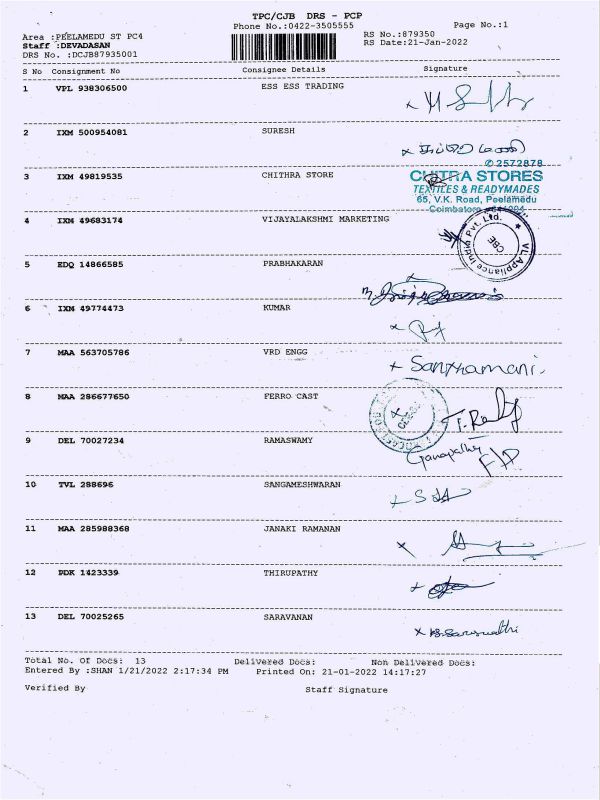 TPC/CJB DRS - PCP
Phone No.:0422-3505555
Page No.:1
Area :PEELAMEDU ST PC4
RS No.:879350
Staff :DEVADASAN
RS Date:21-Jan-2022
DRS No. :DCJB87935001
S No Consignment No Consignee Details Signature
1 VPL 938306500 ESS ESS TRADING
2 IXM 500954081 SURESH
✆ 2572878
3 IXM 49819535 CHITHRA STORE
CHITRA STORES
TEXTILES & READYMADES
65, V.K. Road, Peelamedu
Coimbatore
4 IXM 49683174 VIJAYALAKSHMI MARKETING
VL Appliance India Pvt. Ltd.
CBE
5 EDQ 14866585 PRABHAKARAN
6 IXM 49774473 KUMAR
7 MAA 563705786 VRD ENGG
Santhamani.
8 MAA 286677650 FERRO CAST
T. Reddy
9 DEL 70027234 RAMASWAMY
Ganapathy
10 TVL 288696 SANGAMESHWARAN
11 MAA 285988368 JANAKI RAMANAN
12 PDK 1423339 THIRUPATHY
13 DEL 70025265 SARAVANAN
Total No. Of Docs: 13 Delivered Docs: Non Delivered Docs:
Entered By :SHAN 1/21/2022 2:17:34 PM Printed On: 21-01-2022 14:17:27
Verified By Staff Signature